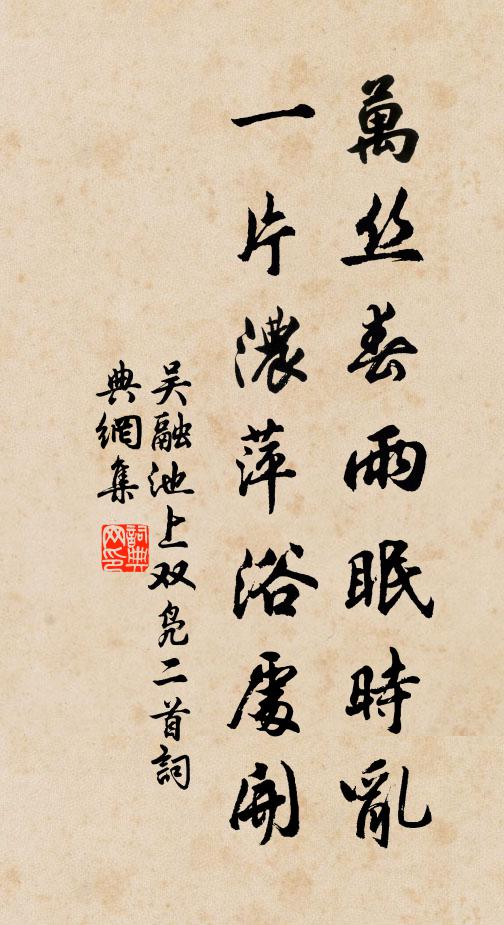 萬丝春雨眠時亂
一片濃萍浴處開
吴融池上双凫二首詞
典網集
詞典网印